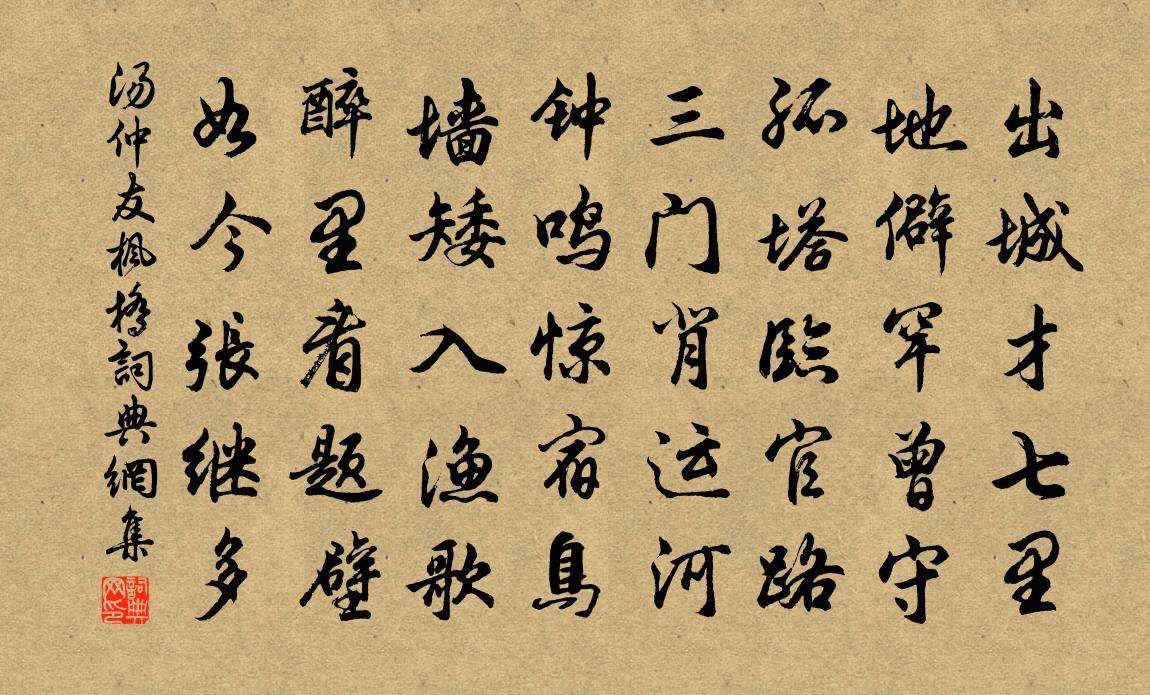 出城才七里
地僻罕曾守
孤塔臨官路
三门背运河
钟鸣惊宿鳥
墙矮入渔歌
醉里看题壁
如今張继多
汤仲友楓橋詞典網集
詞典网印